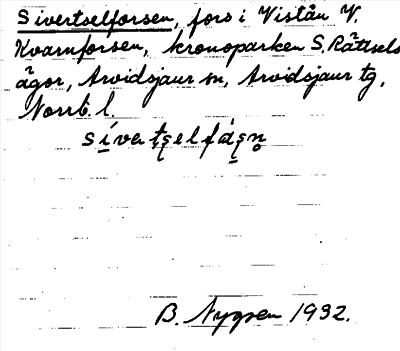 Sivertselforsen, fors i Vistån V.
Kvarnforsen, kronoparken S. Rättsels
ägor, Arvidsjaur sn, Arvidsjaur tg,
Norrb. l.
B. Nygren 1932.